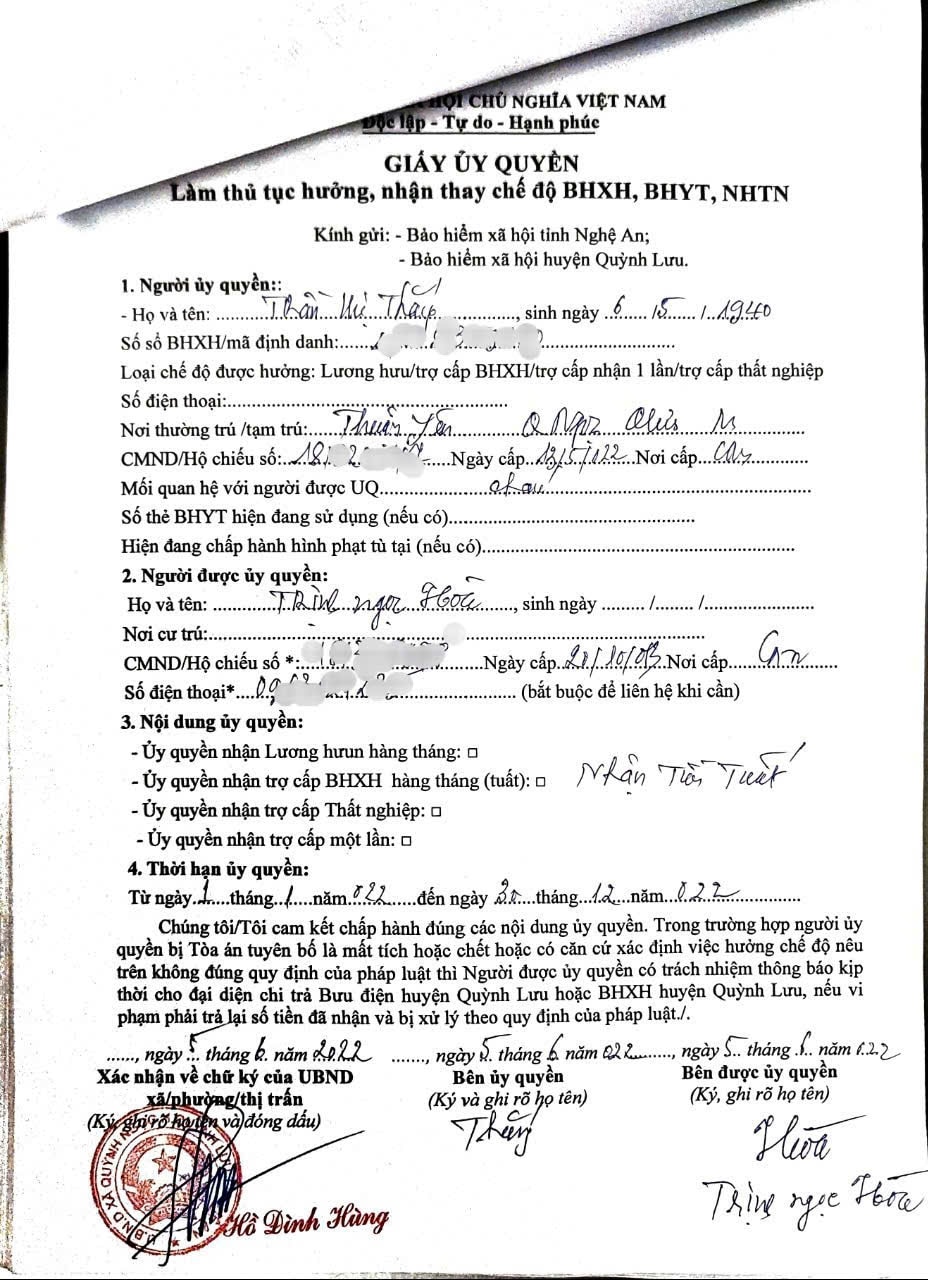 HỘI CHỦ NGHĨA VIỆT NAM
Độc lập - Tự do - Hạnh phúc
GIẤY ỦY QUYỀN
Làm thủ tục hưởng, nhận thay chế độ BHXH, BHYT, NHTN
Kính gửi: - Bảo hiểm xã hội tỉnh Nghệ An;
- Bảo hiểm xã hội huyện Quỳnh Lưu.
1. Người ủy quyền::
- Họ và tên: Trần Thị, sinh ngày 6 / 5 / 1940
Số sổ BHXH/mã định danh:
Loại chế độ được hưởng: Lương hưu/trợ cấp BHXH/trợ cấp nhận 1 lần/trợ cấp thất nghiệp
Số điện thoại:
Nơi thường trú /tạm trú: Thuận Yên Q Ngọc
CMND/Hộ chiếu số: 18 Ngày cấp 13/5/022 Nơi cấp
Mối quan hệ với người được UQ cháu
Số thẻ BHYT hiện đang sử dụng (nếu có)
Hiện đang chấp hành hình phạt tù tại (nếu có)
2. Người được ủy quyền:
Họ và tên: Trịnh ngọc Hòa, sinh ngày / /
Nơi cư trú:
CMND/Hộ chiếu số *: Ngày cấp 20/10/013 Nơi cấp
Số điện thoại* 09 (bắt buộc để liên hệ khi cần)
3. Nội dung ủy quyền:
- Ủy quyền nhận Lương hưun hàng tháng: □
- Ủy quyền nhận trợ cấp BHXH hàng tháng (tuất): □ Nhận Tiền Tuất
- Ủy quyền nhận trợ cấp Thất nghiệp: □
- Ủy quyền nhận trợ cấp một lần: □
4. Thời hạn ủy quyền:
Từ ngày 1 tháng 1 năm 022 đến ngày 30 tháng 12 năm 022
Chúng tôi/Tôi cam kết chấp hành đúng các nội dung ủy quyền. Trong trường hợp người ủy
quyền bị Tòa án tuyên bố là mất tích hoặc chết hoặc có căn cứ xác định việc hưởng chế độ nêu
trên không đúng quy định của pháp luật thì Người được ủy quyền có trách nhiệm thông báo kịp
thời cho đại diện chi trả Bưu điện huyện Quỳnh Lưu hoặc BHXH huyện Quỳnh Lưu, nếu vi
phạm phải trả lại số tiền đã nhận và bị xử lý theo quy định của pháp luật./.
......, ngày 5 tháng 6 năm 2022 ......., ngày 5 tháng 6 năm 022 ......, ngày 5 tháng năm 022
Xác nhận về chữ ký của UBND Bên ủy quyền Bên được ủy quyền
xã/phường/thị trấn (Ký và ghi rõ họ tên) (Ký, ghi rõ họ tên)
(Ký, ghi rõ họ tên và đóng dấu)
Hòa
Trịnh ngọc Hòa
U.B.N.D XÃ QUỲNH
Hồ Đình Hùng